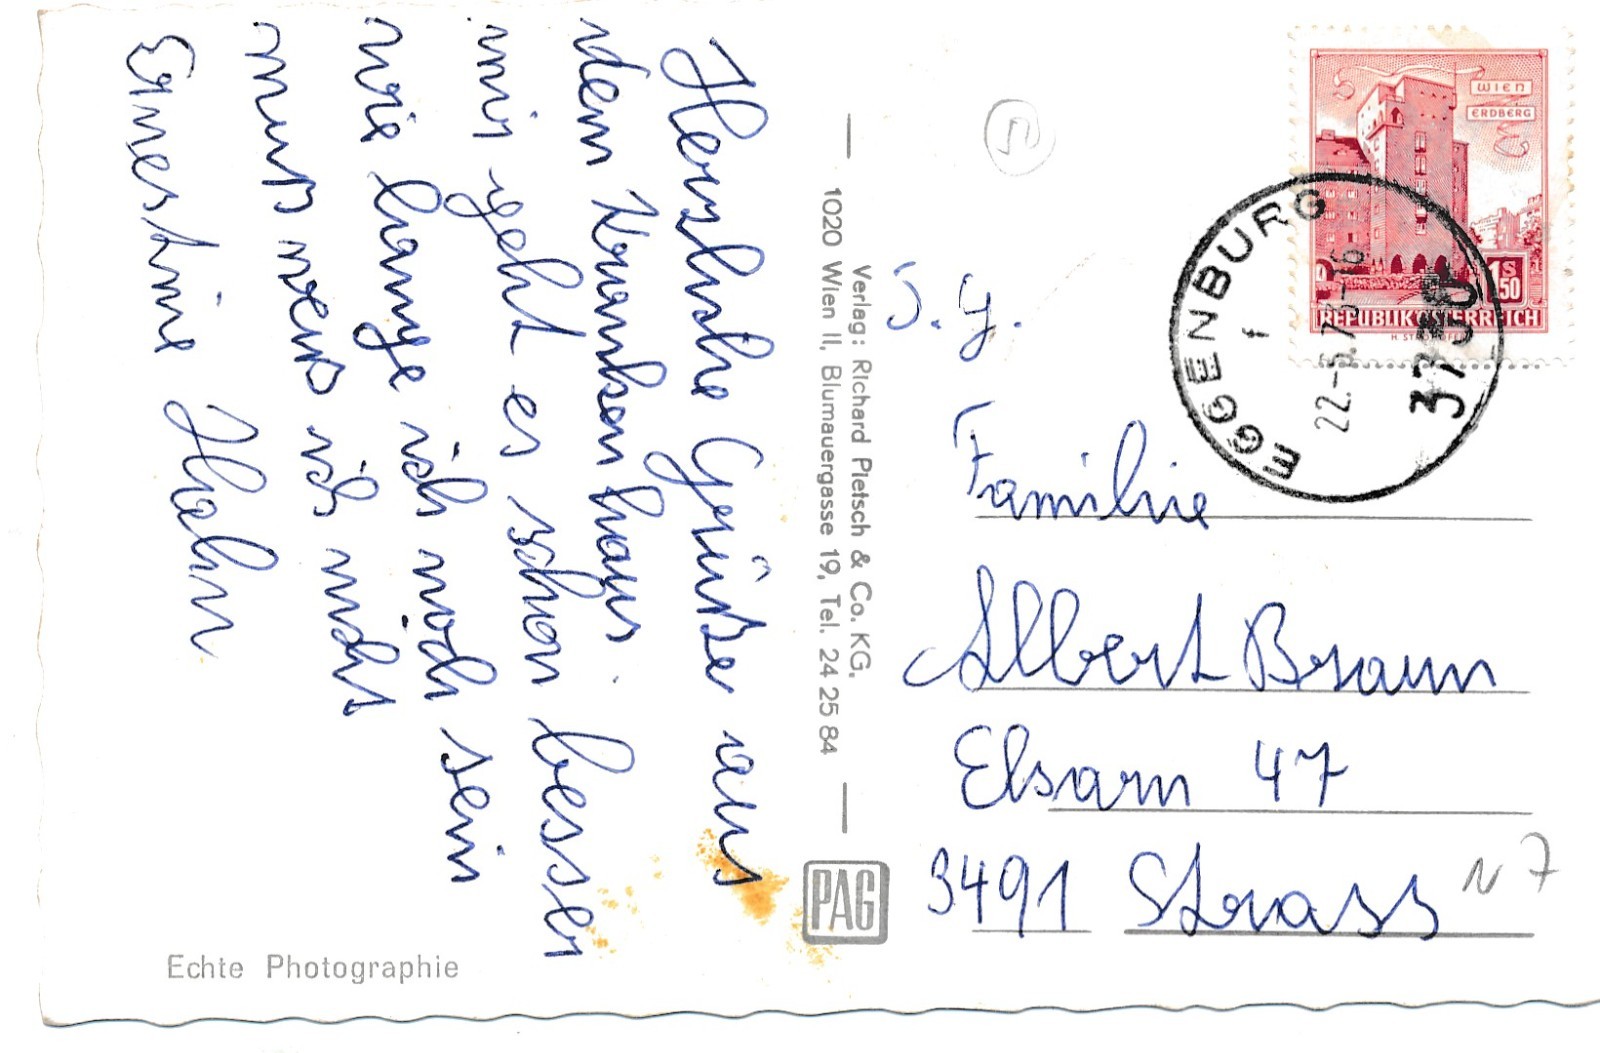 Herzliche Grüße aus
dem Krankenhaus.
mir geht es schon besser
wie lange ich noch sein
muss weiss ich nicht
Ernestine Hahn
Echte Photographie
Verlag: Richard Pietsch & Co. KG.
1020 Wien II, Blumauergasse 19, Tel. 24 25 84
PAG
WIEN
ERDBERG
1S
50
REPUBLIK ÖSTERREICH
EGGENBURG
f
22.-5.73-16
3730
Familie
Albert Braun
Elsarn 47
3491 Strass
N 7